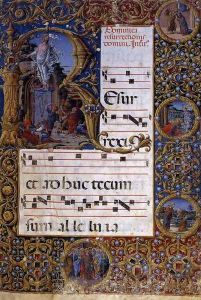 Dominica
resurrectionis
domini. Intr.
R Esur
rexi
et ad huc tecum
sum al le lu ia